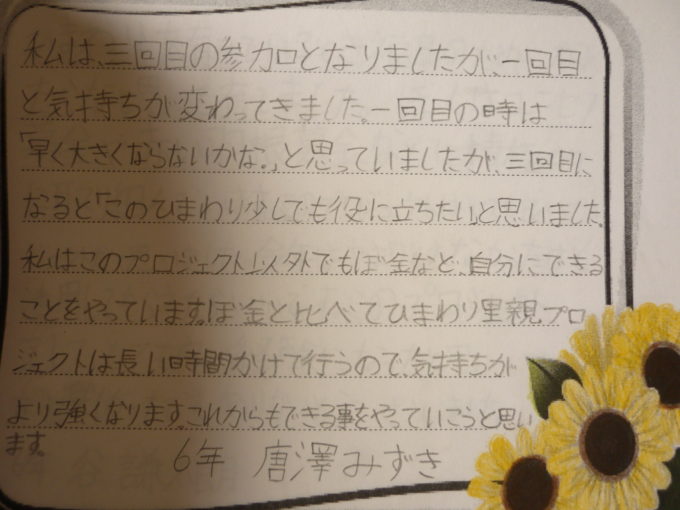 私は、三回目の参加となりましたが、一回目
と気持ちが変わってきました。一回目の時は
「早く大きくならないかな。」と思っていましたが、三回目に
なると「このひまわり少しでも役に立ちたい」と思いました。
私はこのプロジェクト以外でもぼ金など、自分にできる
ことをやっています。ぼ金と比べてひまわり里親プロ
ジェクトは長い時間かけて行うので、気持ちが
より強くなります。これからもできる事をやっていこうと思い
ます。
6年 唐澤みずき